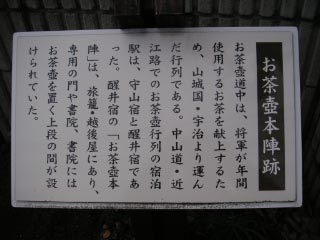 お茶壺本陣跡
お茶壺道中は、将軍が年間
使用するお茶を献上するた
め、山城国・宇治より運ん
だ行列である。中山道・近
江路でのお茶壺行列の宿泊
駅は、守山宿と醒井宿であ
った。醒井宿の「お茶壺本
陣」は、旅籠・越後屋にあり、
専用の門や書院、書院には
お茶壺を置く上段の間が設
けられていた。